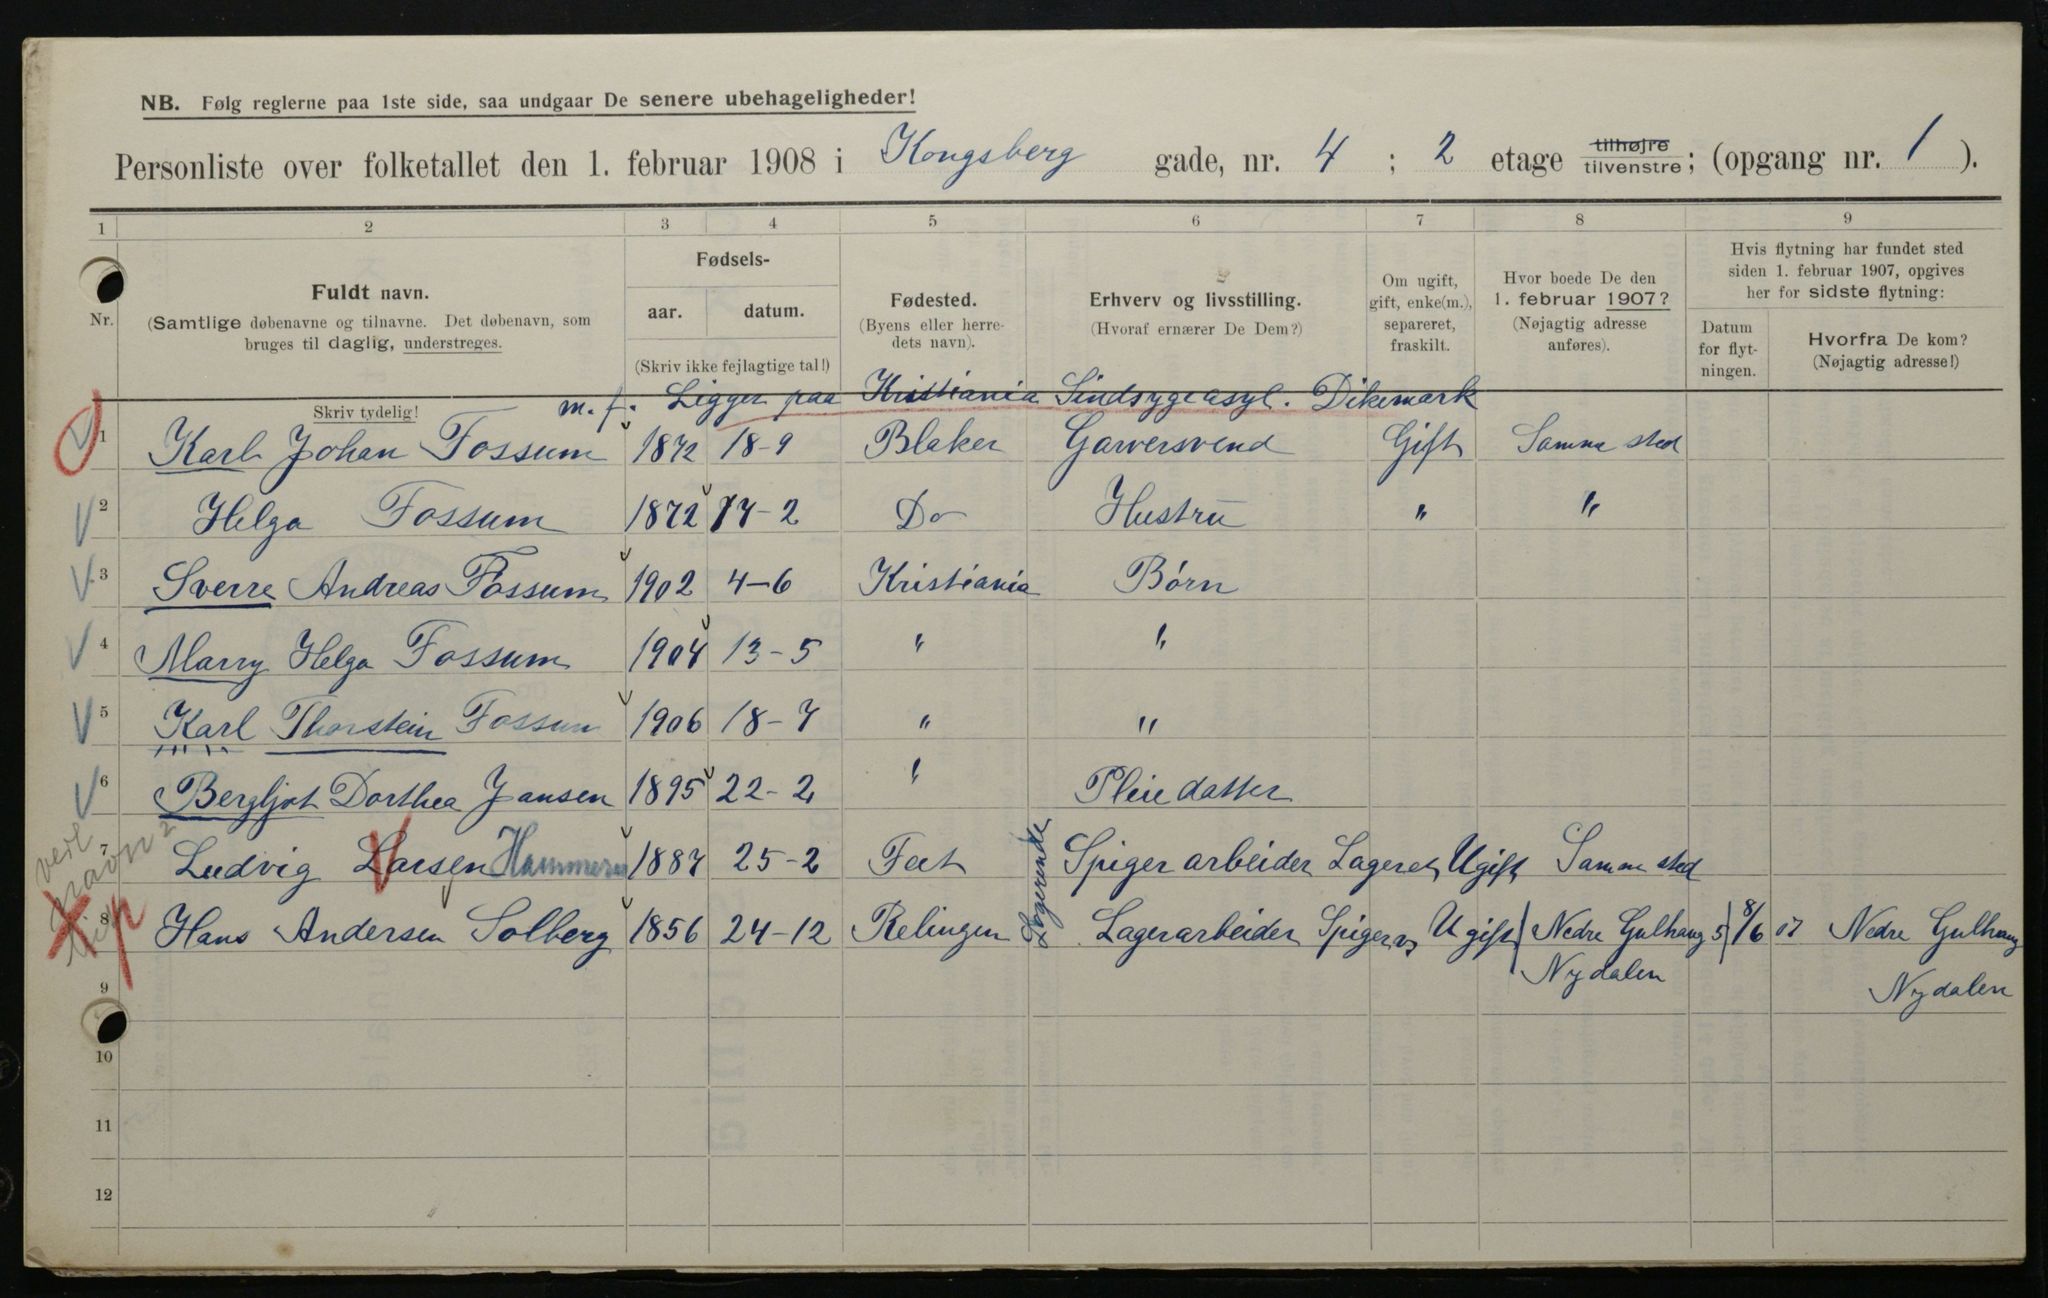 NB. Følg reglerne paa 1ste side, saa undgaar De senere ubehageligheder!
Personliste over folketallet den 1. februar 1908 i Kongsberg gade, nr. 4 ; 2 etage tilhøjre tilvenstre ; (opgang nr. 1 ).
1 2 3 4 5 6 7 8 9
Nr.
Fuldt navn.
(Samtlige døbenavne og tilnavne. Det døbenavn, som
bruges til daglig, understreges.
Skriv tydelig!
Fødsels-
aar. datum.
(Skriv ikke fejlagtige tal!)
Fødested.
(Byens eller herre-
dets navn).
Erhverv og livsstilling.
(Hvoraf ernærer De Dem?)
Om ugift,
gift, enke(m.),
separeret,
fraskilt.
Hvor boede De den
1. februar 1907?
(Nøjagtig adresse
anføres).
Hvis flytning har fundet sted
siden 1. februar 1907, opgives
her for sidste flytning:
Datum
for flyt-
ningen.
Hvorfra De kom?
(Nøjagtig adresse!)
m. f. Ligger paa Kristiania Sindsygeasyl. Dikemark
1 Karl Johan Fossum 1872 18-9 Blaker Garversvend Gift Samme sted
2 Helga Fossum 1872 17-2 Do Hustru " "
3 Sverre Andreas Fossum 1902 4-6 Kristiania Børn
4 Marry Helga Fossum 1904 13-5 " "
5 Karl Thorstein Fossum 1906 18-7 " "
6 Bergljot Dorthea Jansen 1895 22-2 " Pleiedatter
7 Ludvig Larsen Hammeren 1887 25-2 Feet Logerende Spigerarbeider Ugift Samme sted
8 Hans Andersen Solberg 1856 24-12 Relingen Lagerarbeider Ugift Nedre Gulhaug 5 8/6 07 Nedre Gulhaug
Nydalen Nydalen
9
10
11
12